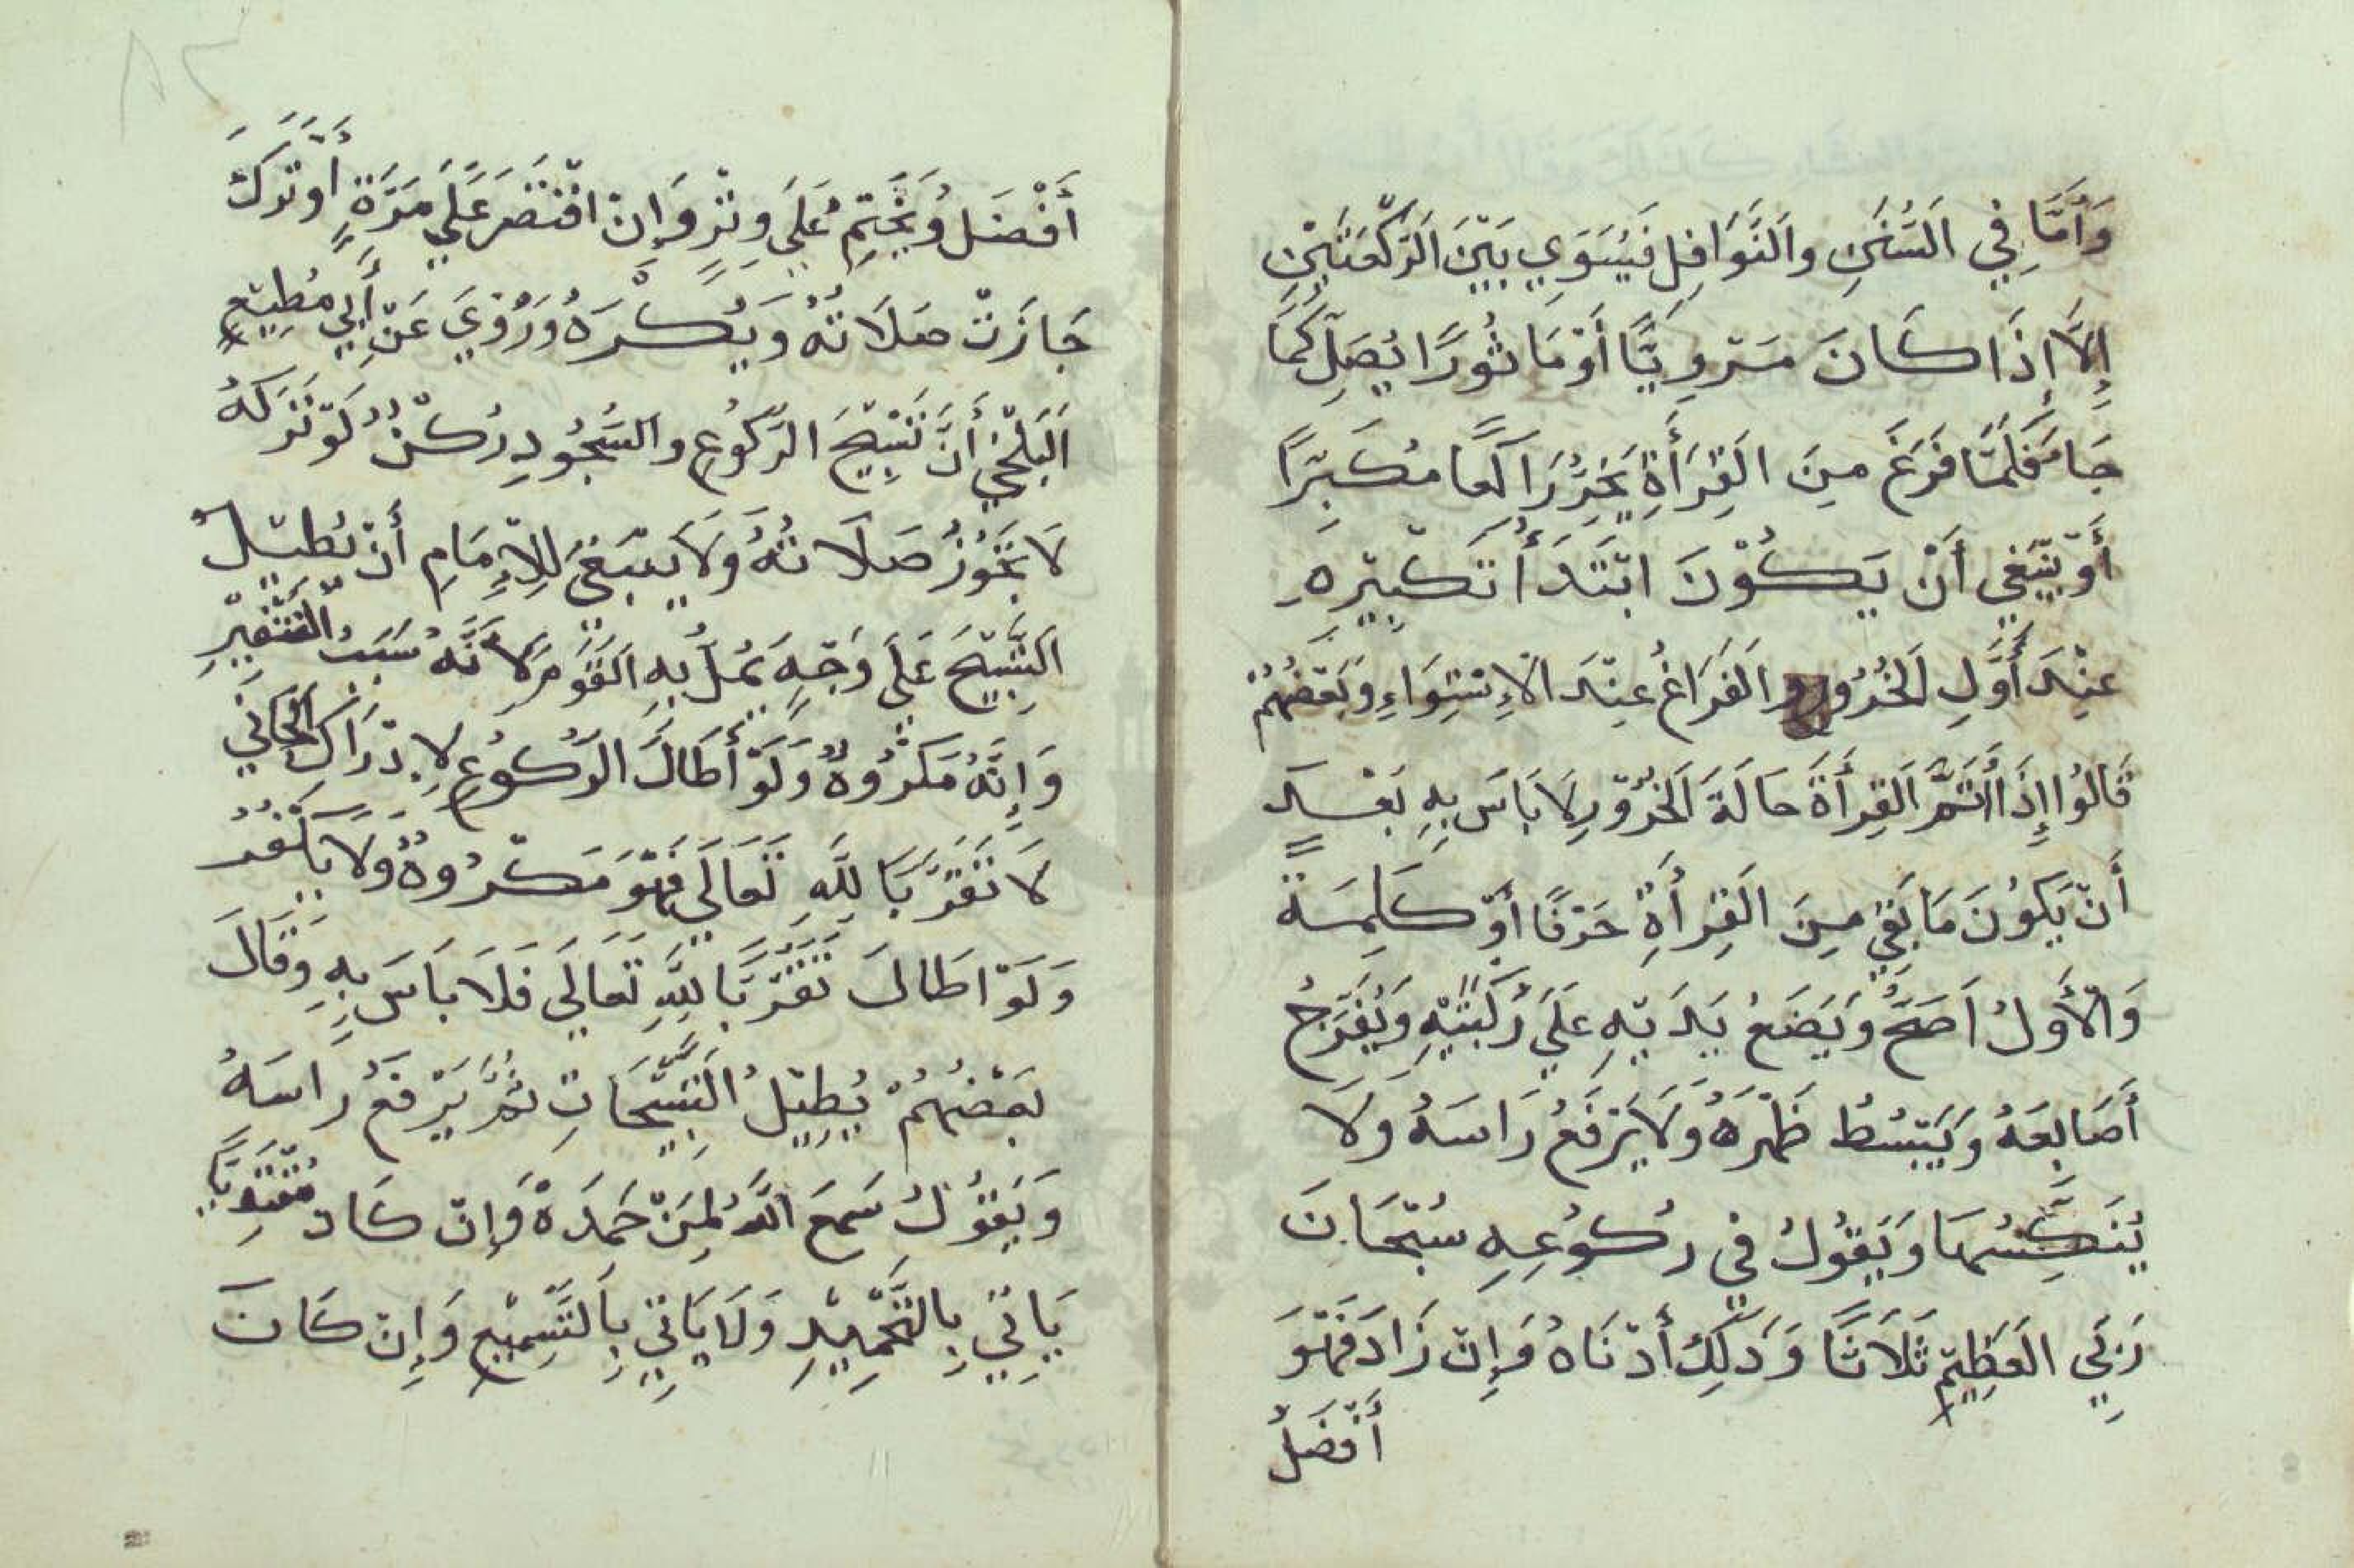 وَأَمَّا فِي السُّنَنِ والنَّوَافِلِ فَيُسَوِي بَيْنَ الرَّكْعَتَيْنِ
إِلَّا إِذَا كَانَ مَرْوِيًّا أَوْ مَاثُورًا يُصَلِّ كَمَا
جَا فَلَمَّا فَرَغَ مِنَ القِرَأَةِ يَخِرُّ رَاكِعًا مُكَبِّرًا
أَوْ يَنْبَغِي أَنْ يَكُوْنَ ابْتَدَأُ تَكْبِيْرِهِ
عِنْدَ أَوَّلِ الخُرُورِ والفَرَاغُ عِنْدَ الاِسْتِوَاءِ وَبَعْضُهُمْ
قَالُوا إِذَا أَتَمَّ القِرَأَةَ حَالَةَ الخُرُوْرِ لَا بَاسَ بِهِ بَعْدَ
أَنْ يَكُوْنَ مَا بَقِيَ مِنَ القِرَأَةِ حَرْفًا أَوْ كَلِمَةً
وَالْأَوَّلُ اَصَحُّ وَيَضَعُ يَدَيْهِ عَلَي رُكْبَتَيْهِ وَيُفَرِّجُ
أَصَابِعَهُ وَيَبْسُطُ ظَهْرَهُ وَلَا يَرْفَعُ رَاسَهُ وَلَا
يُنَكِّسُهَا وَيَقُوْلُ فِي رُكُوْعِهِ سُبْحَانَ
رَبِّيَ العَظِيْمِ ثَلَاثًا وَذَلِكَ أَدْنَاهُ وَإِنْ زَادَ فَهُوَ
أَفْضَلُ
أَفْضَلُ وَيَخْتِمُ عَلَي وِتْرٍ وَإِنْ اقْتَصَرَ عَلَي مَرَّةٍ أَوْ تَرَكَ
جَازَتْ صَلَاتُهُ وَيُكْرَهُ وَرُوِيَ عَنْ أَبِي مُطِيْعِ
البَلْخِيِّ أَنَّ تَسْبِيْحَ الرُّكُوْعِ والسُّجُوْدِ رُكْنٌ لَوْ تَرَكَهُ
لَا تَجُوْزُ صَلَاتُهُ وَلَا يَنْبَغِيْ لِلإِمَامِ أَنْ يُطِيْلَ
التَّسْبِيْحَ عَلَي وَجْهٍ يَمُلُّ بِهِ القَوْمُ لِاَنَّهُ سَبَبُ التَّنْفِيْرِ
وَإِنَّهُ مَكْرُوهٌ وَلَوْ أَطَالَ الرُّكُوْعَ لِإِدْرَاكِ الجَائِي
لَا تَقَرُّبًا لِلّٰهِ تَعَالَي فَهُوَ مَكْرُوهٌ وَلَا يَكْفُرُ
وَلَوْ اطَالَ تَقَرُّبًا لِلّٰهِ تَعَالَي فَلَا بَاسَ بِهِ وَقَالَ
بَعْضُهُمْ يُطِيْلُ التَّسْبِيْحَاتِ ثُمَّ يَرْفَعُ رَاسَهُ
وَيَقُوْلُ سَمِعَ اللّٰهُ لِمَنْ حَمِدَهْ وَإِنْ كَانَ مُقْتَدِيًا
يَاتِيْ بِالتَّحْمِيْدِ وَلَا يَاتِيْ بِالتَّسْمِيْعِ وَإِنْ كَانَ